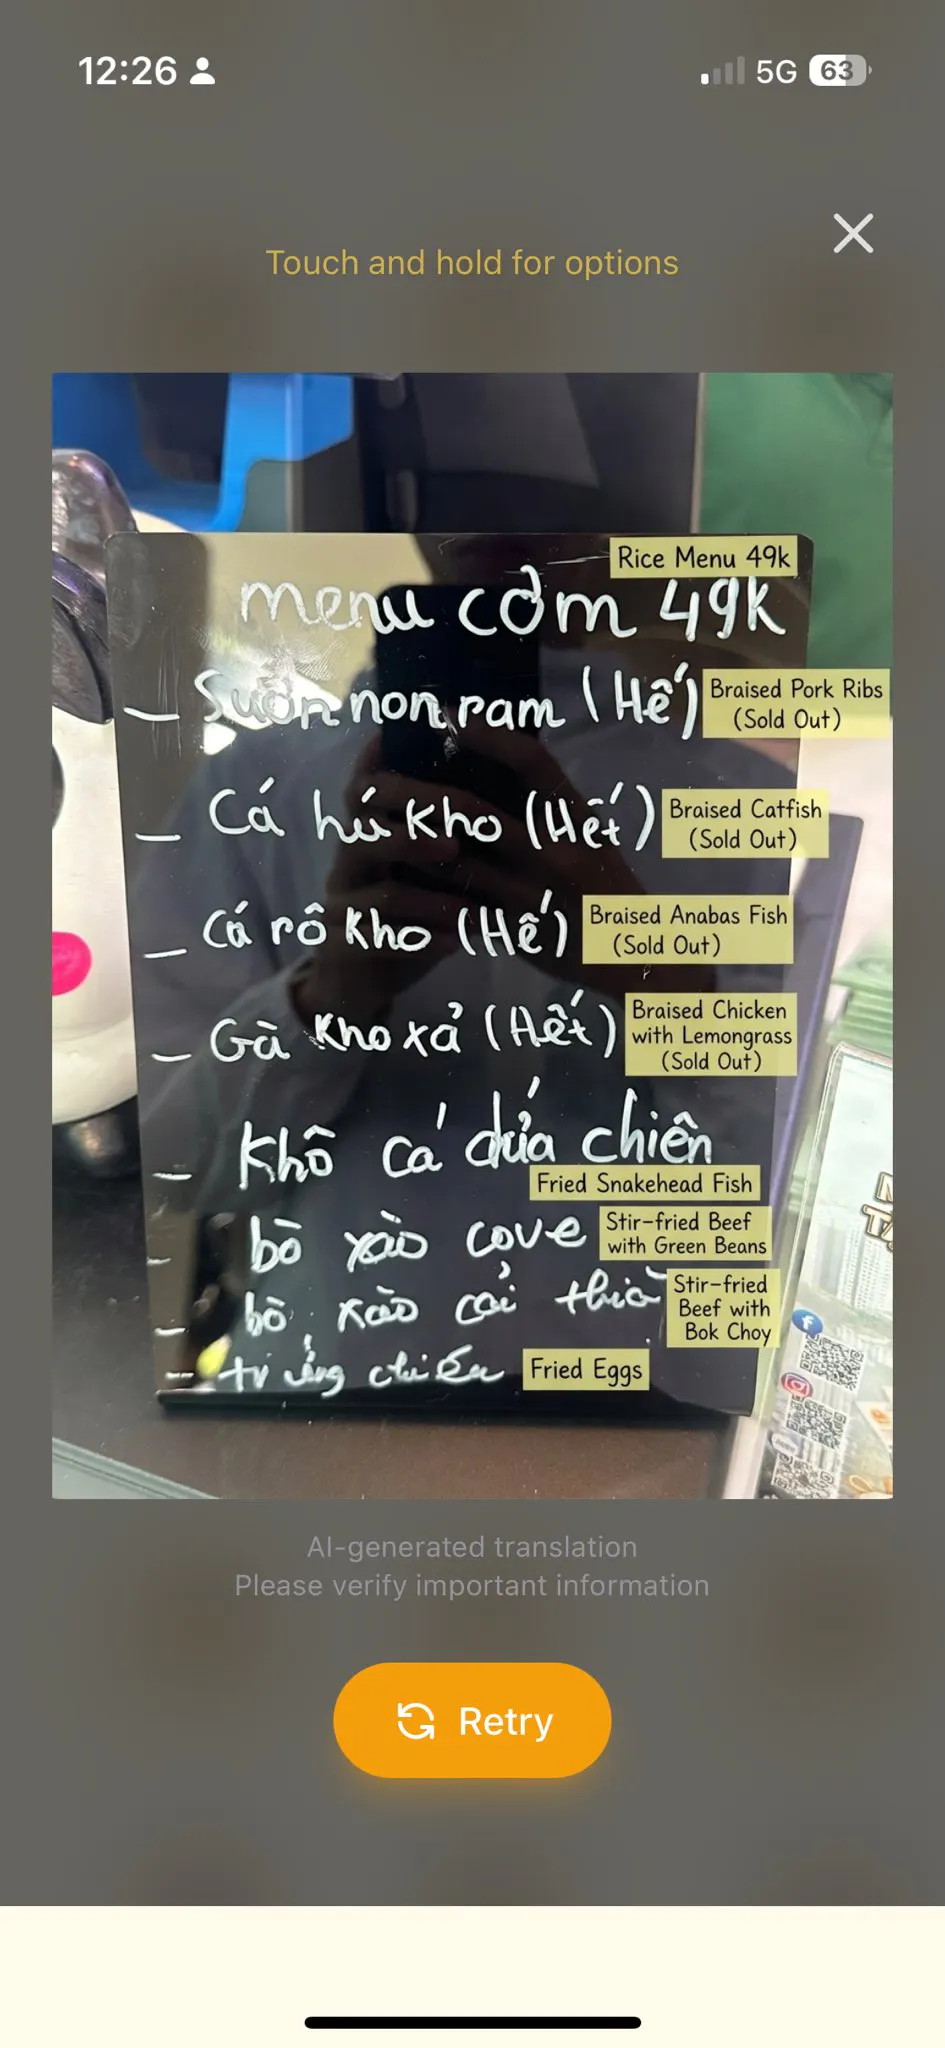 12:26
5G 63
Touch and hold for options
Rice Menu 49k
menu cơm 49K
– Sườn non ram (Hế)
Braised Pork Ribs
(Sold Out)
– Cá hú Kho (Hết)
Braised Catfish
(Sold Out)
– Cá rô Kho (Hế)
Braised Anabas Fish
(Sold Out)
– Gà Kho xả (Hết)
Braised Chicken
with Lemongrass
(Sold Out)
– Khô cá dứa chiên
Fried Snakehead Fish
– bò xào cove
Stir-fried Beef
with Green Beans
– bò xào cải thìa
Stir-fried
Beef with
Bok Choy
– trứng chiên
Fried Eggs
AI-generated translation
Please verify important information
Retry